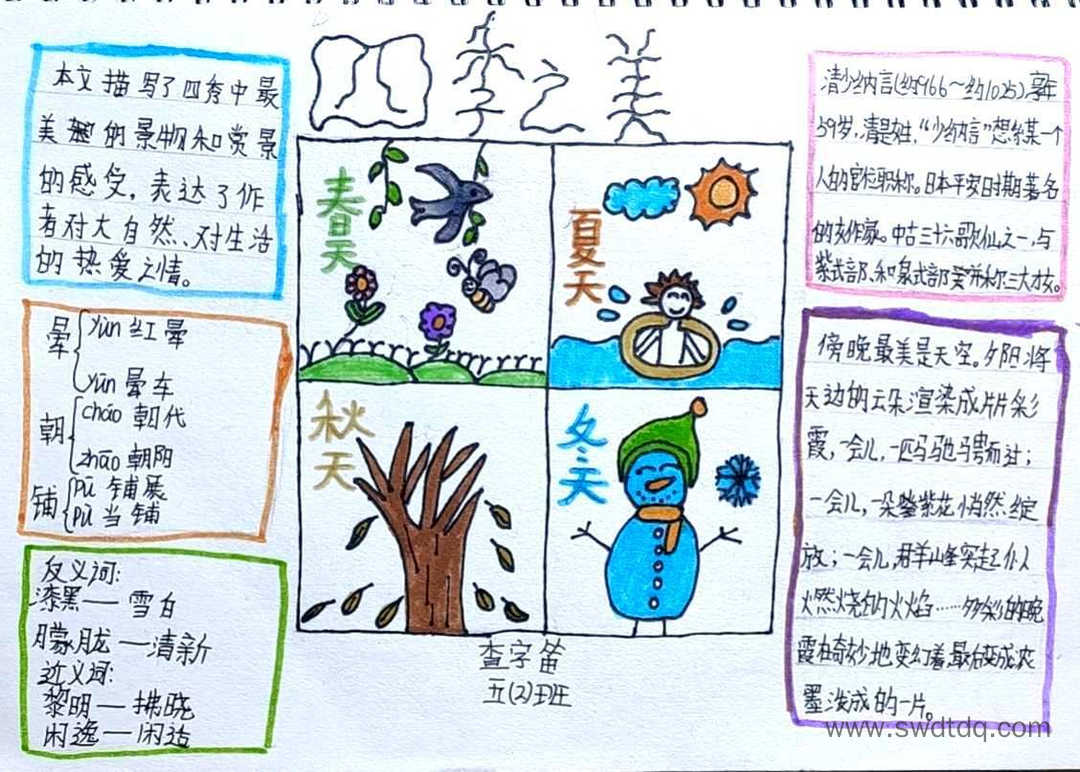 四季之美
本文描写了四季中最
美的景物和赏景
的感受,表达了作
者对大自然、对生活
的热爱之情。
晕
yùn 红晕
yūn 晕车
朝
cháo 朝代
zhāo 朝阳
铺
pū 铺展
pù 当铺
反义词:
漆黑——雪白
朦胧——清新
近义词:
黎明——拂晓
闲逸——闲适
春天
夏天
秋天
冬天
查字笛
五(2)班
清少纳言(约966~约1025),享年
59岁,清是姓,“少纳言”想系某一个
人的官位职称。日本平安时期著名
的女作家。中古三十六歌仙之一,与
紫式部、和泉式部并称三大才女。
傍晚最美是天空。夕阳将
天边的云朵渲染成片片彩
霞,一会儿,一匹马驰而过;
一会儿,一朵紫花悄然绽
放;一会儿,群羊山峰突起仆人
燃烧的火焰……多彩的晚
霞在奇妙地变幻着,最后变成浓
墨泼成的一片。
www.swdtdq.com